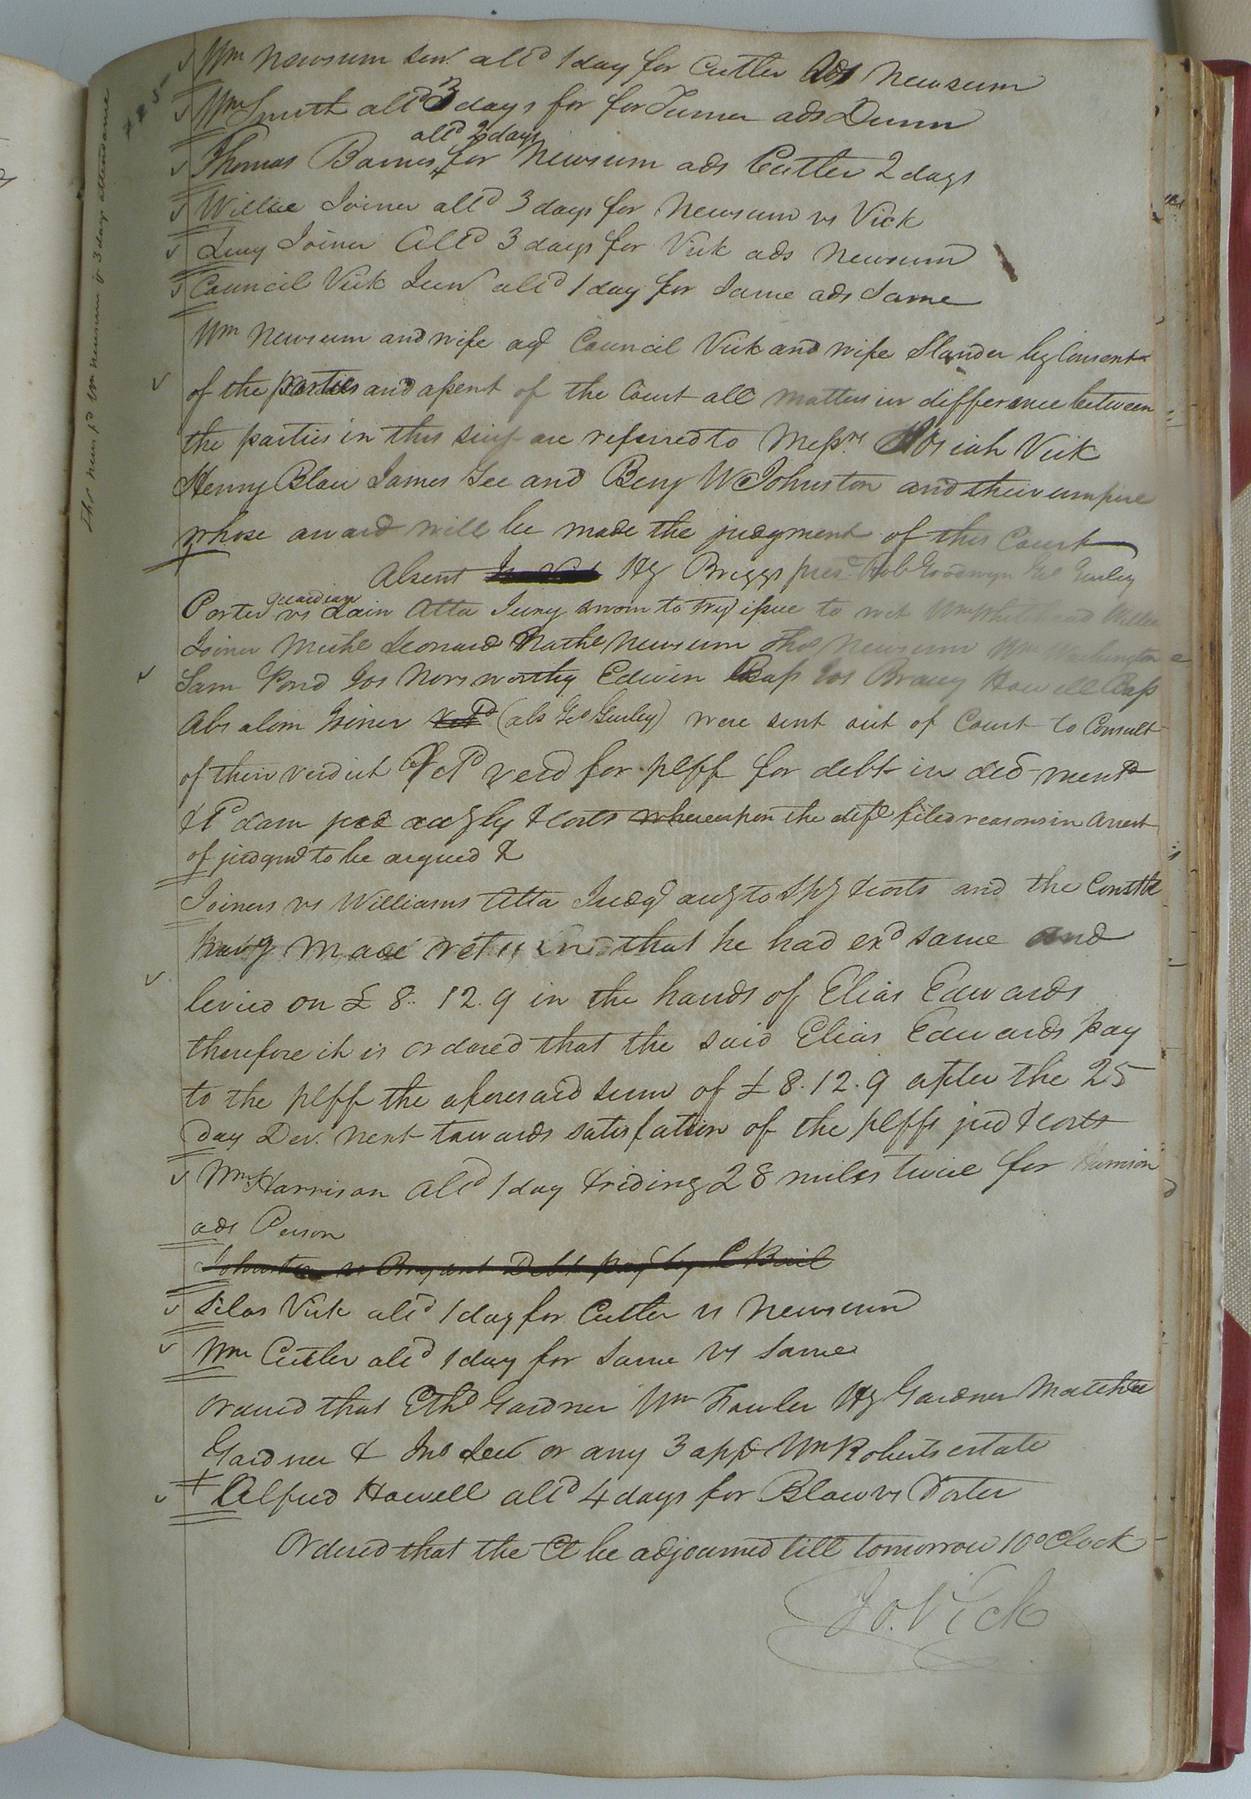 Wm Newsum Sen. alld 1 day for Cutler ads Newsum
Wm Smith alld 3 days for for Turner ads Dunn
alld 2 days
Thomas Barnes for Newsum ads Cutler 2 days
Willie Joiner alld 3 days for Newsum vs Vick
Lucy Joiner alld 3 days for Vick ads Newsum
Council Vick Jun alld 1 day for Same ads Same
Wm Newsum and wife agt Council Vick and wife Slander by Consent
of the parties and assent of the Court all matters in difference between
the parties in this suit are referred to Messrs Vick
Henry Blow James Gee and Benj W Johnston and their umpire
whose award will be made the judgment of this Court
Absent Hy Briggs pres. Rob Goodwyn Geo Gurley
guardian
Porter vs Lain Atta Jury sworn to try issue to wit Wm Whitehead Willie
Joiner Michl Leonard Nathl Newsum Thos Newsum Wm Washington
Sam Pond Jos Norsworthy Edwin Bass Jos Howell Bass
Absalom Joiner (abs Geo Gurley) were sent out of Court to Consult
of their verdict retd verd for plff for debt in decl ment
& 1d dam jud accgly & costs whereupon the deft filed reasons in arrest
of judgmt to be argued &
Joiners vs Williams Atta Judgt accg to spy & costs and the Constble
havg made return that he had exd same and
levied on £ 8.. 12. 9 in the hands of Elias Edwards
therefore it is ordered that the said Elias Edwards pay
to the plff the aforesaid sum of £ 8. 12. 9 after the 25
Day Dec. next towards satisfation of the plffs jud & costs
Wm Harrison alld 1 day & riding 28 miles twice for Harrison
ads Person
Johnston vs Bryant Debt
Silas Vick alld 1 day for Cutler vs Newsum
Wm Cutler alld 1 day for Same vs Same
Ordered that Ethd Gardner Wm Fowler Hy Gardner Matthew
Gardner & Jno or any 3 app Wm Roberts estate
Alfred Howell alld 4 days for Blow vs Porter
Ordered that the Ct be adjourned till tomorrow 10 oClock
Jo. Vick
Thos Newsum 3 days attendance